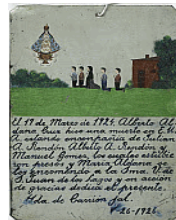 El 19 de Marzo de 1924, Alberto Al
dana Cruz hizo una muerte en E.U.
A. estando en compañia de Julian
A. Rendón Alberto A. Rendón y
Manuel Gomez, los cuales estubie
ron presos y Maria Aldana de
los encomendo a la Sma. V. de
S. Juan de los Lagos y en accion
de gracias dedica el presente.
Hda. de Carrion Jal.
26-1926